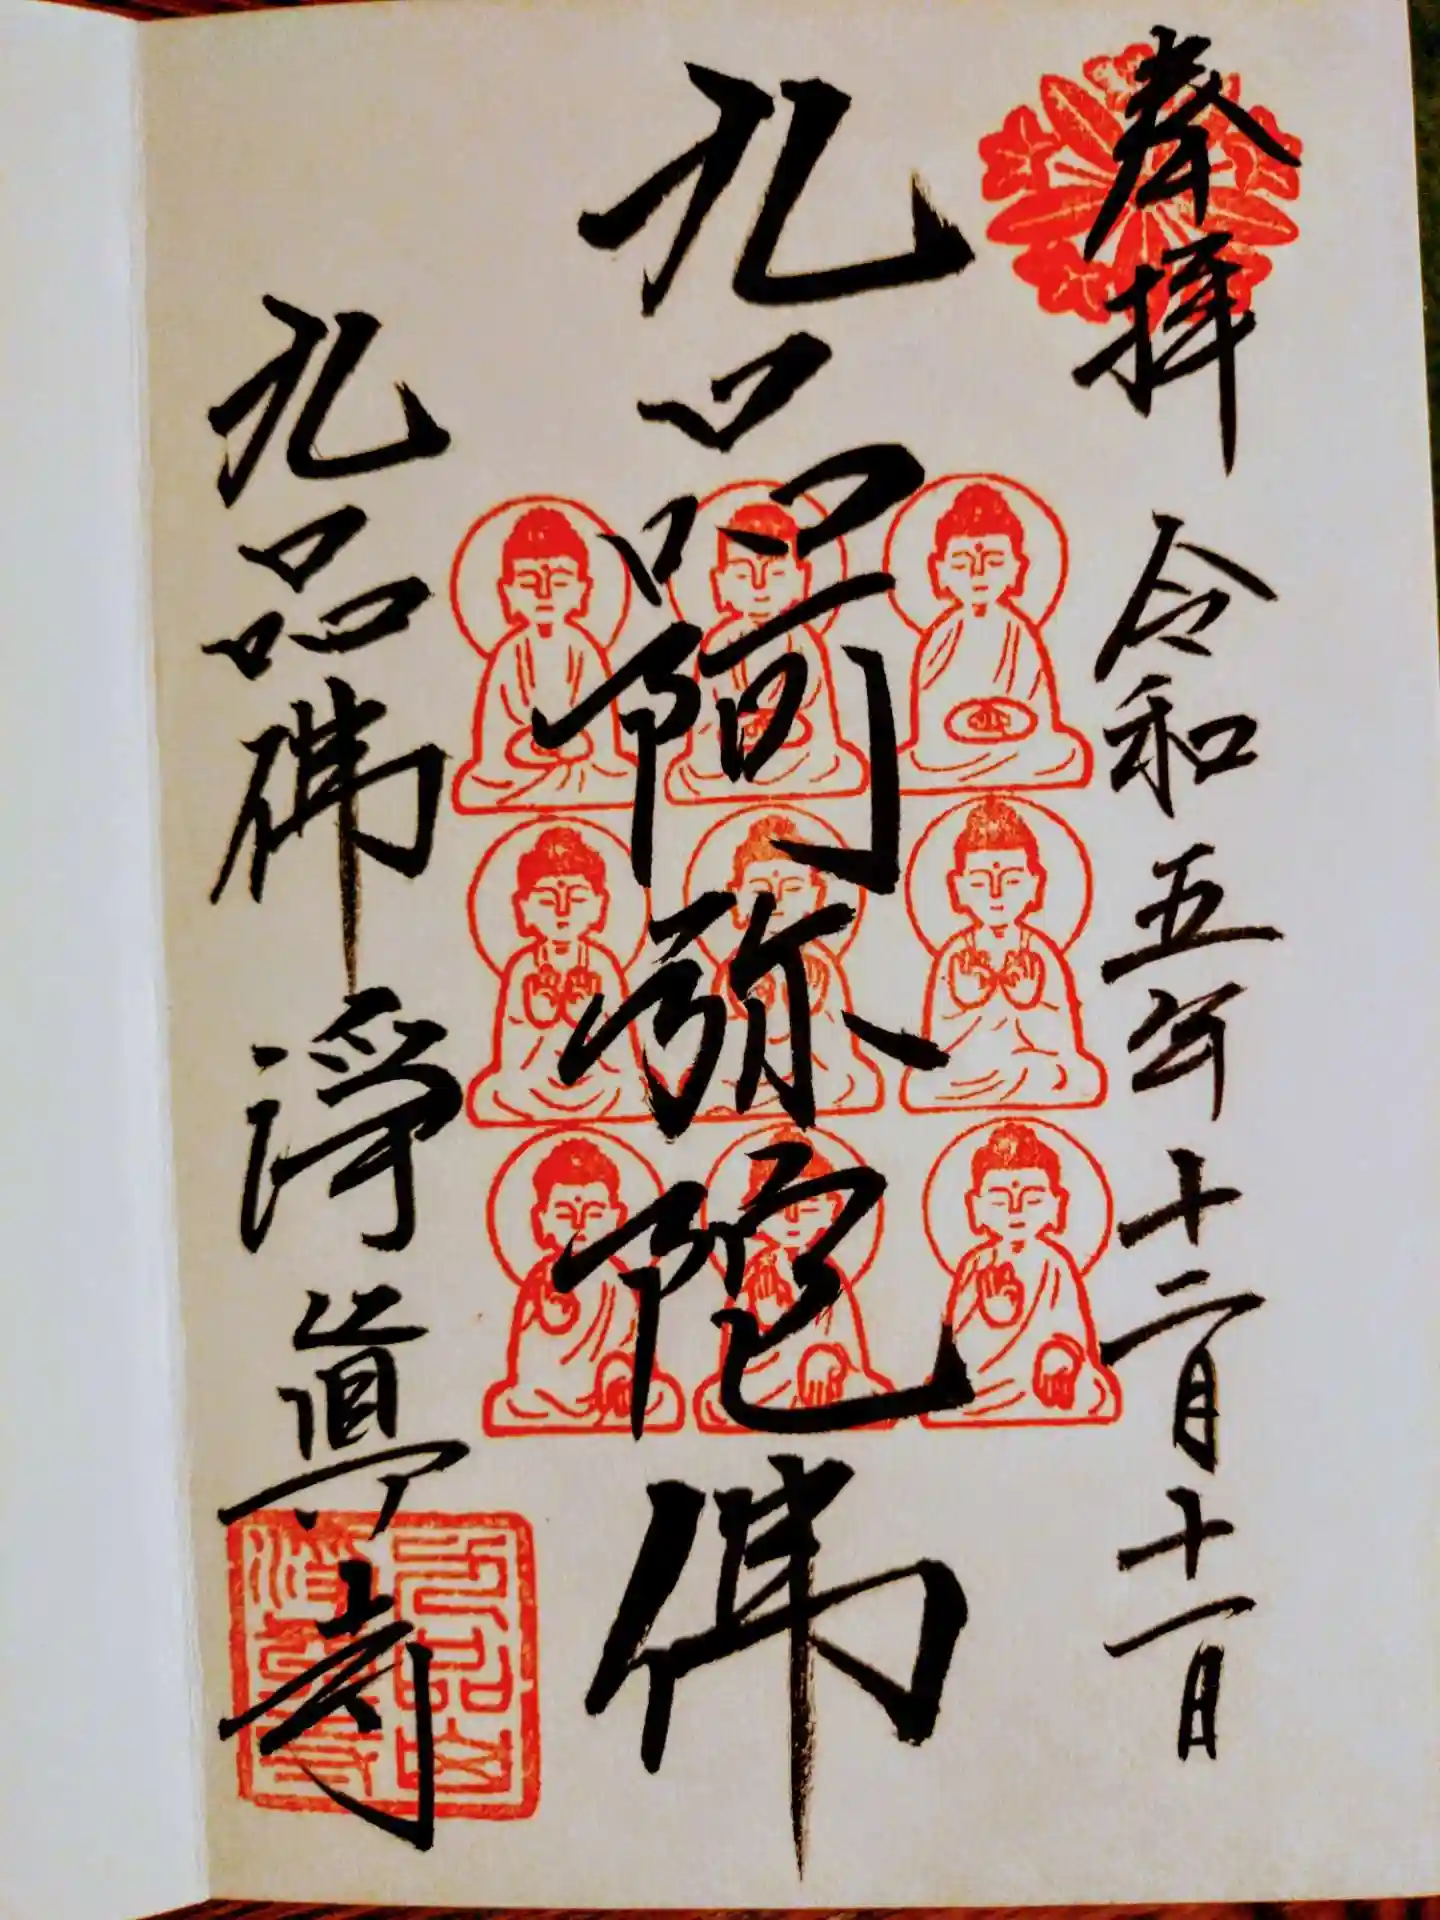 奉拝 令和五年十二月十一日
九品阿弥陀佛
九品佛 淨眞寺
九品山
淨眞寺